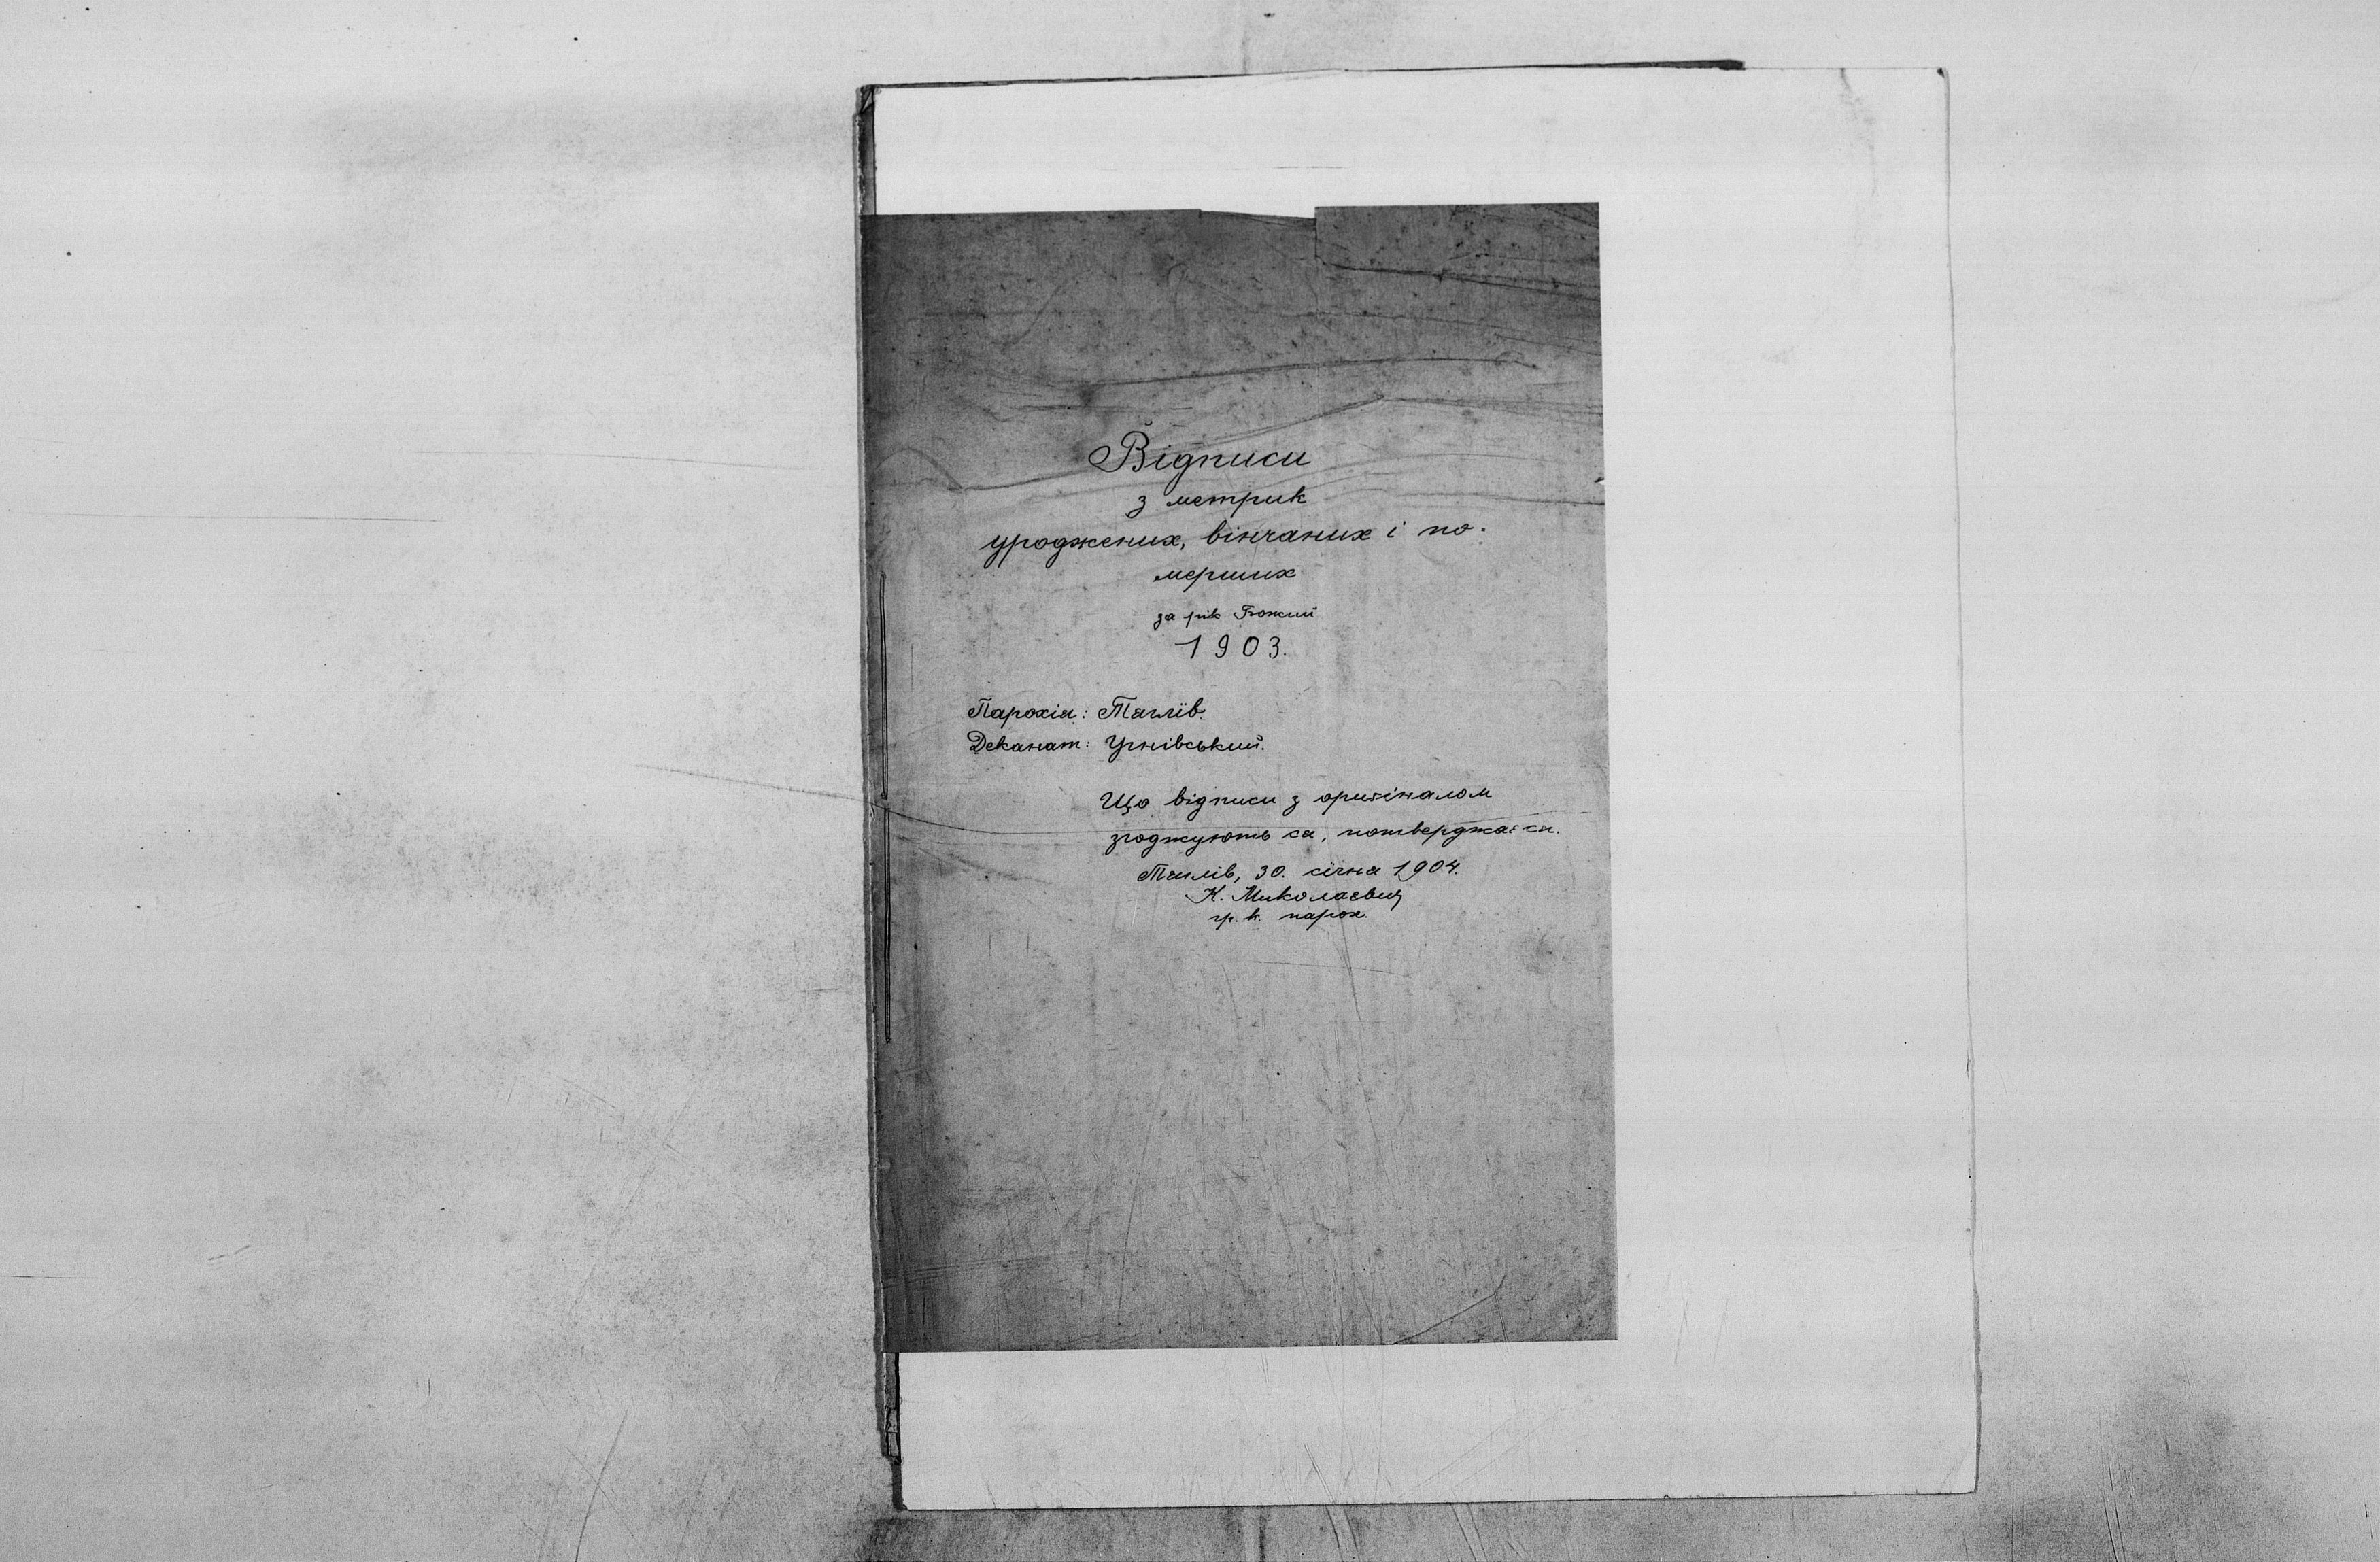 Відписи
з метрик
уроджених, вінчаних і по-
мерших
за рік Божий
1903.
Парохія: Тяглїв.
Деканат: Угнівський.
Що відписи з ориґіналом
згоджують ся, потверджає ся.
Тяглів, 30. січня 1904.
К. Миколаєвич
гр. к. парох.